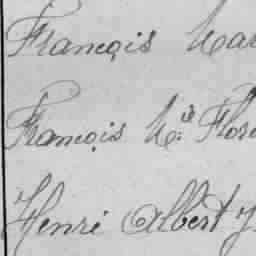 François Mar
François M.ie Flore
Henri Albert J